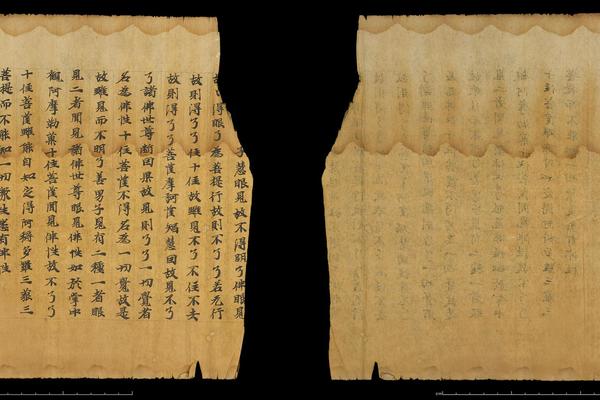 了慧眼見故不得明了佛眼見
故則得明了為菩提行故則不了了若无行
故則得了了住十住故雖見不了不住不去
故則得了了菩薩摩訶薩智慧因故見不了
了諸佛世尊斷因果故見則了了一切覺者
名為佛性十住菩薩不得名為一切覺故是
故雖見而不明了善男子見有二種一者眼
見二者聞見諸佛世尊眼見佛性如於掌中
觀阿摩勒菓十住菩薩聞見佛性故不了了
十住菩薩雖能自知定得阿耨多羅三藐三
菩提而不能知一切衆生悉有佛性